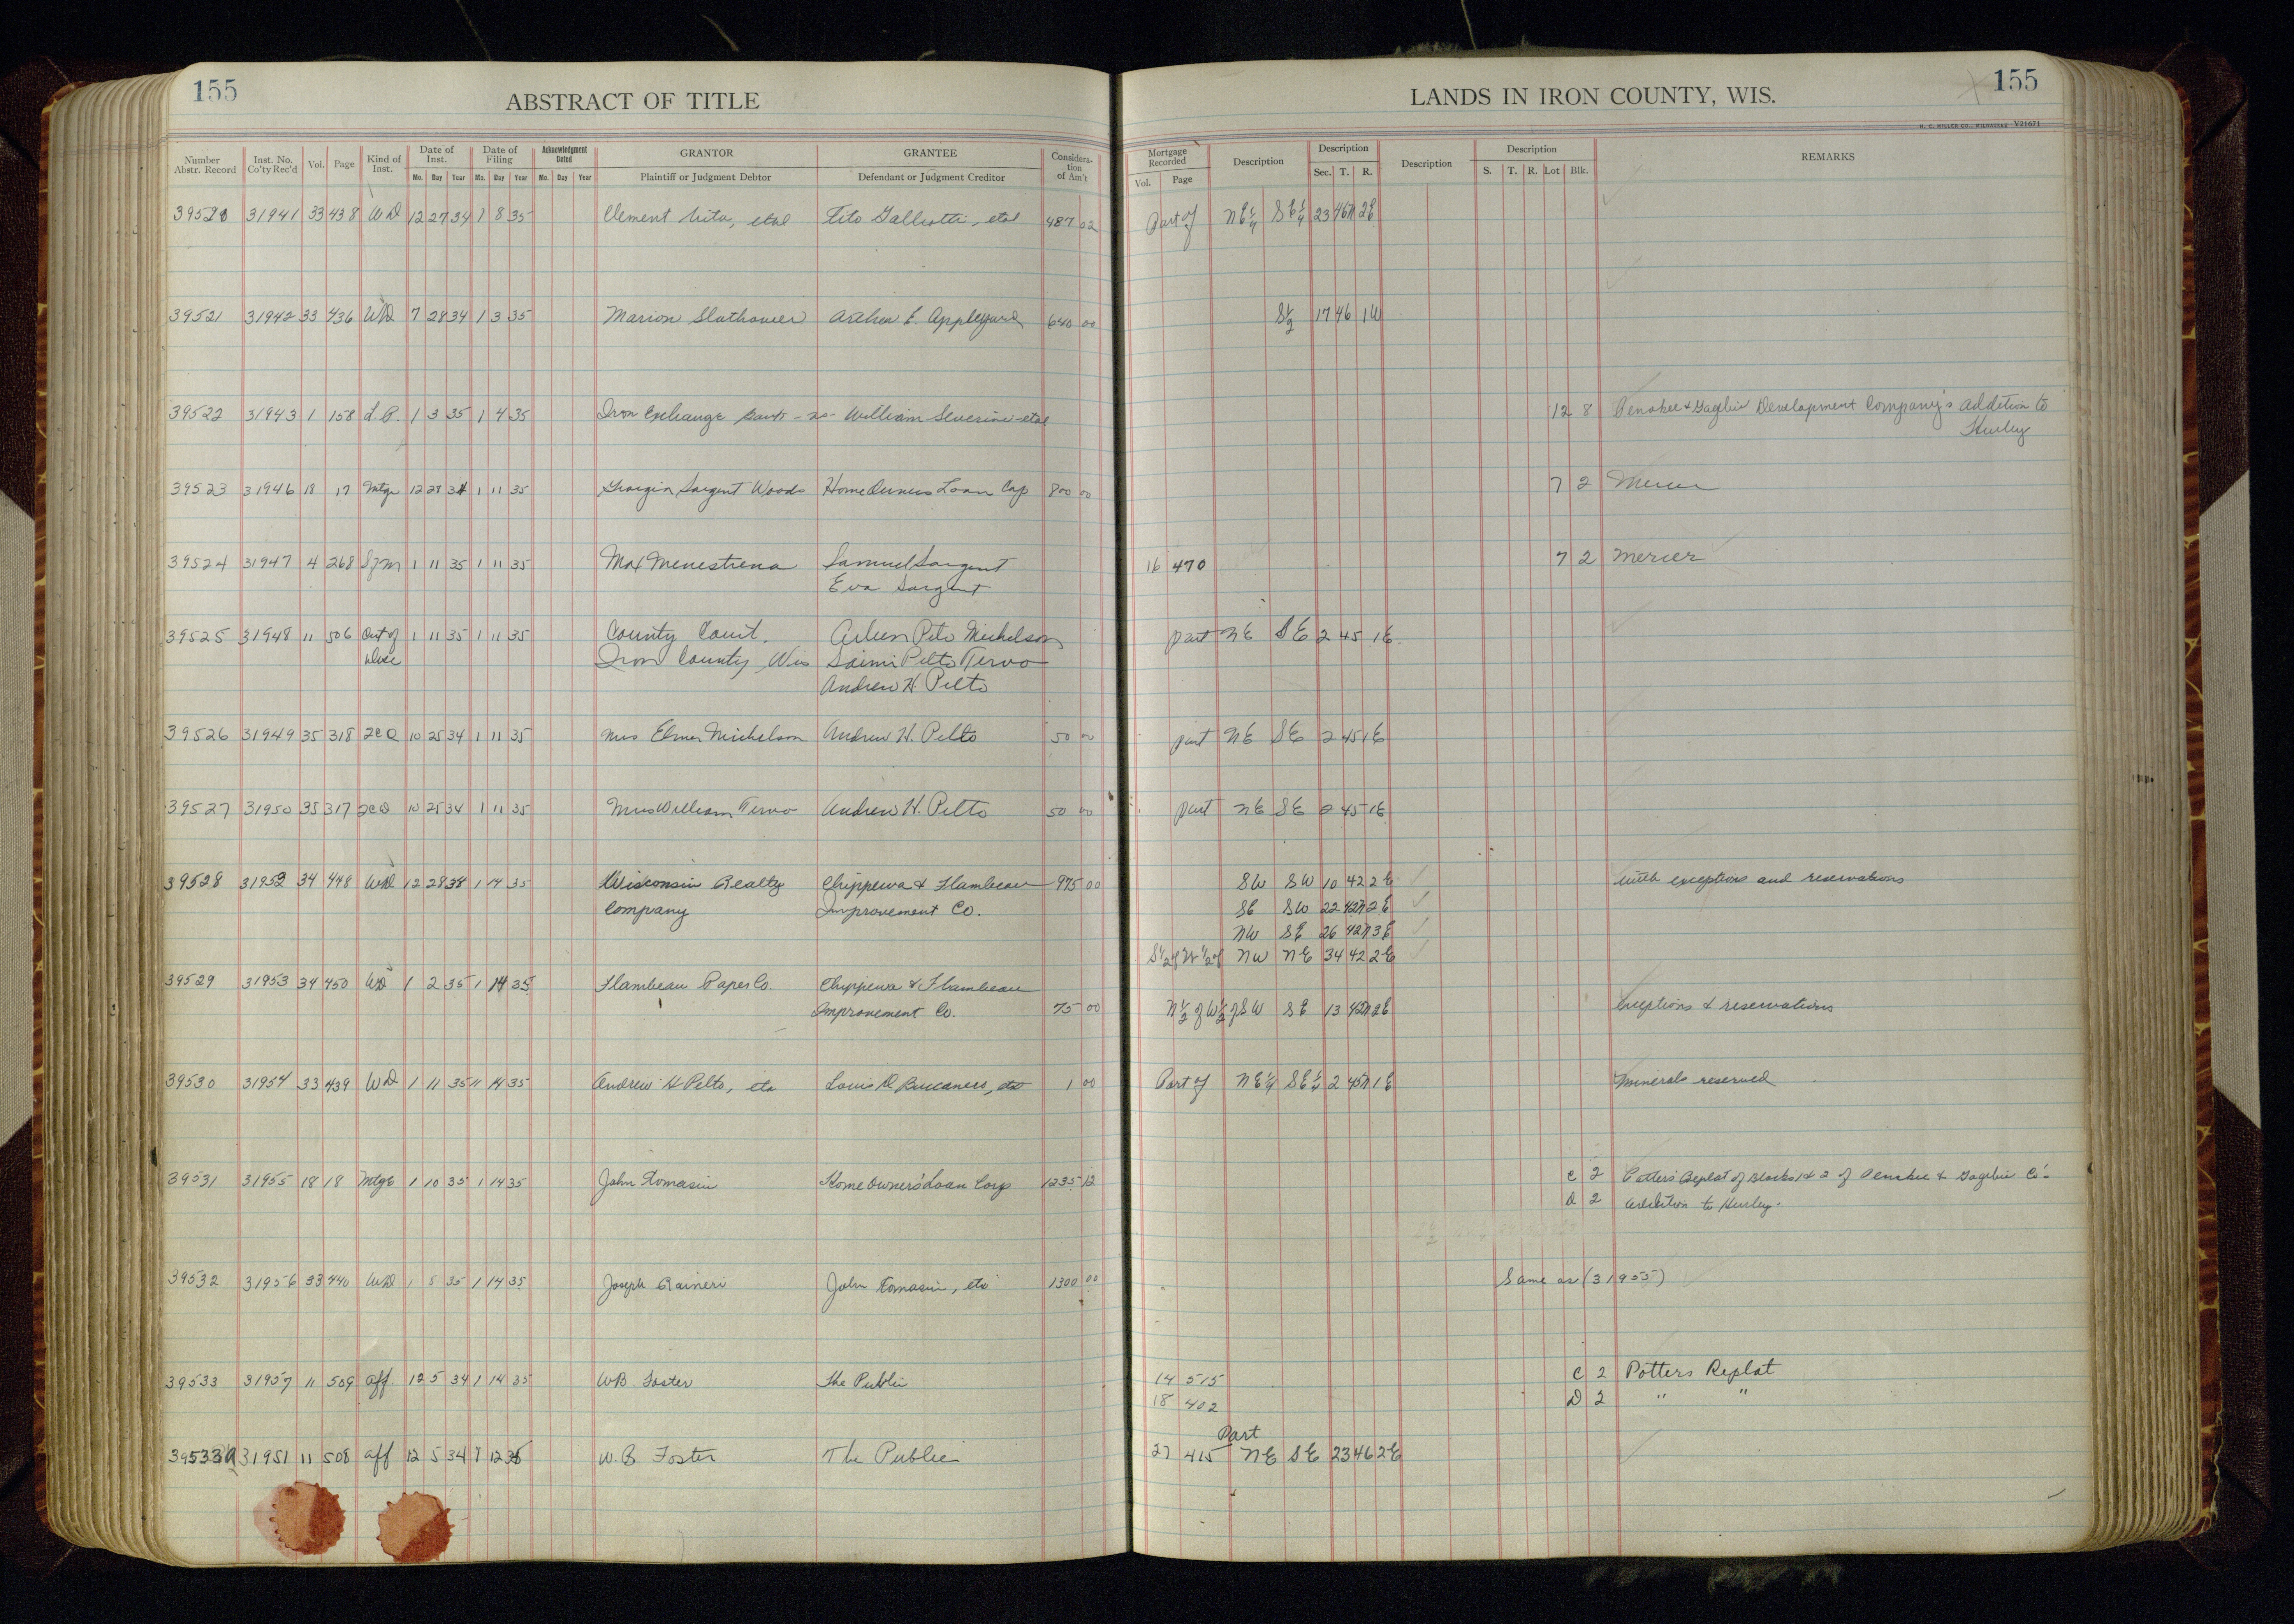 155
ABSTRACT OF TITLE
LANDS IN IRON COUNTY, WIS.
155
H. C. MILLER CO., MILWAUKEE V21671
Number Abstr. Record Inst. No. Co'ty Rec'd Vol. Page Kind of Inst. Date of Inst. Date of Filing Acknowledgment Dated GRANTOR GRANTEE Considera-tion of Am't Mortgage Recorded Description Description Description Description REMARKS
Mo. Day Year Mo. Day Year Mo. Day Year Plaintiff or Judgment Debtor Defendant or Judgment Creditor Vol. Page Sec. T. R. S. T. R. Lot Blk.
39520 31941 33 438 WD 12 27 34 1 8 35 Clement Vita, etal Tito Galliotti, etal 487 02 Part of NE¼ SE¼ 23 46N 2E
39521 31942 33 436 WD 7 28 34 1 3 35 Marion Slathower E. Appleyard 640 00 S½ 17 46 1W
39522 31943 1 158 L.P. 1 3 35 1 4 35 Iron Exchange Bank -vs- William Severini-etal 12 8 Penokee & Gagebic Development Company's Addition to
Hurley
39523 31946 18 17 Mtge 12 28 34 1 11 35 Georgia Sargent Woods Home Owners Loan Cap 800 00 7 2 Mercer
39524 31947 4 268 SfM 1 11 35 1 11 35 Max Menestrena Samuel Sargent 16 470 7 2 Mercer
Eva Sargent
39525 31948 11 506 1 11 35 1 11 35 County Court. Pelto Michelson part NE SE 2 45 1E
Iron County, Wis Saimi Pelto Tervo
Andrew H. Pelto
39526 31949 35 318 QCD 10 25 34 1 11 35 Mrs Elmer Michelson Andrew H. Pelto 50 00 part NE SE 2 45 1E
39527 31950 35 317 QCD 10 25 34 1 11 35 Mrs William Tervo Andrew H. Pelto 50 00 part NE SE 2 45 1E
39528 31952 34 448 WD 12 28 34 1 14 35 Wisconsin Realty Chippewa & Flambeau 975 00 SW SW 10 42 2E with exceptions and reservations
Company Improvement Co. SE SW 22 42N 2E
NW SE 26 42N 3E
S½ of W½ of NW NE 34 42 2E
39529 31953 34 450 WD 1 2 35 1 14 35 Flambeau Paper Co. Chippewa & Flambeau
Improvement Co. 75 00 N½ of W½ of SW SE 13 42N 2E exceptions & reservations
39530 31954 33 439 WD 1 11 35 1 14 35 Andrew H Pelto, etc Louis D. Buccanero, etc 1 00 Part of NE¼ SE¼ 2 45N 1E minerals reserved
39531 31955 18 18 Mtge 1 10 35 1 14 35 John Tomasin Home Owners' Loan Corp 1235 12 C 2 Potters Replat of Blocks 1 & 2 of Penokee & Gagebic Co's.
D 2 Addition to Hurley.
39532 31956 33 440 WD 1 8 35 1 14 35 Joseph Raineri John Tomasin, etc 1300 00 Same as (31955)
39533 31957 11 509 aff. 12 5 34 1 14 35 W.B. Foster The Public 14 515 C 2 Potters Replat
18 402 D 2 " "
Part
39533A 31951 11 508 aff 12 5 34 1 12 35 W. B Foster The Public 27 415 NE SE 23 46 2E